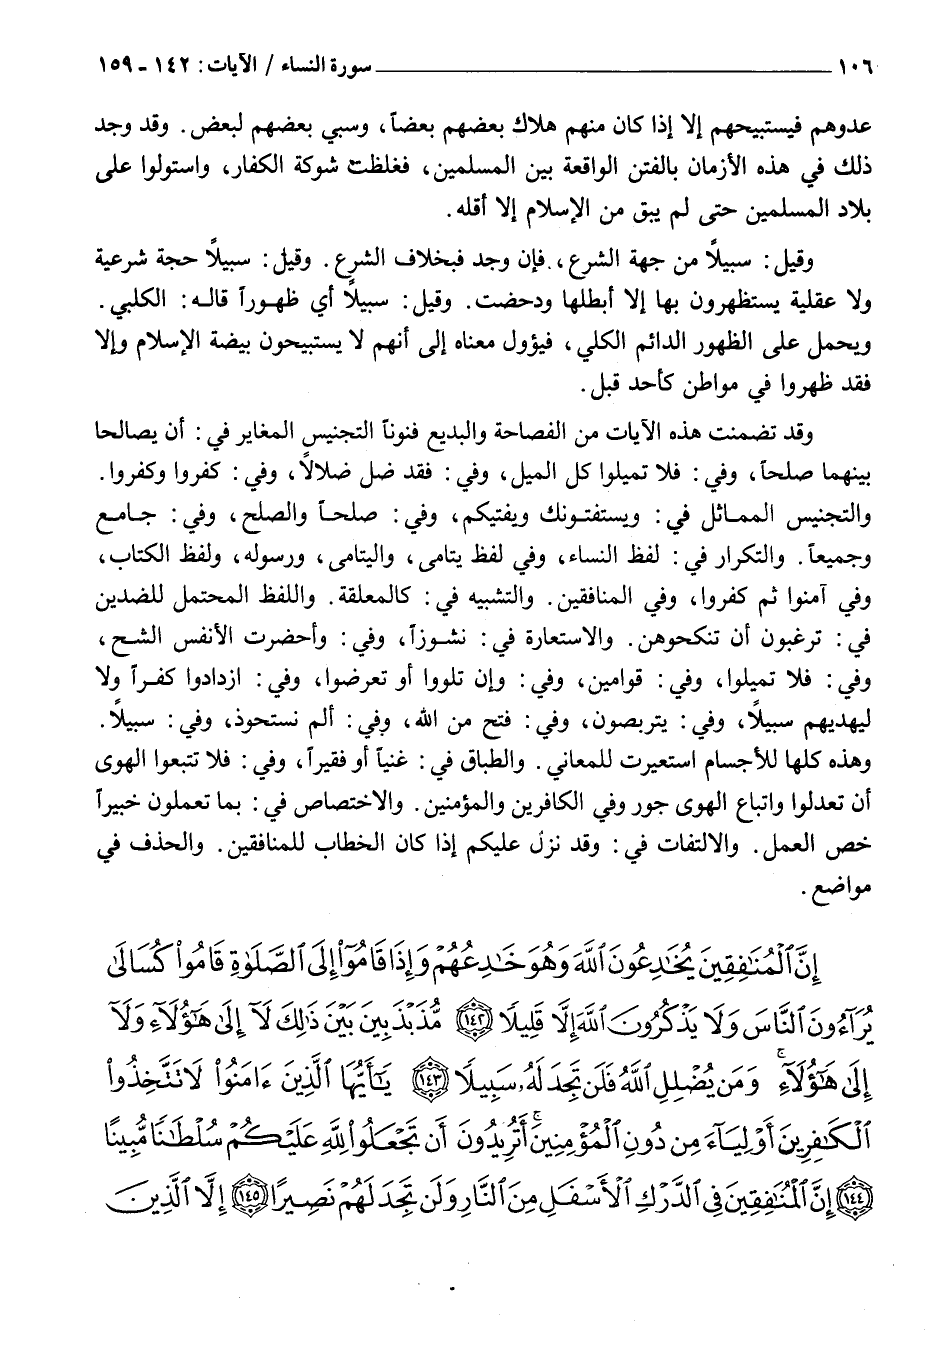 ١٠٦ ــــــــــــــــــــــــــــــــ سورة النساء / الآيات: ١٤٢ ـ ١٥٩
عدوهم فيستبيحهم إلا إذا كان منهم هلاك بعضهم بعضاً، وسبي بعضهم لبعض. وقد وجد
ذلك في هذه الأزمان بالفتن الواقعة بين المسلمين، فغلظت شوكة الكفار، واستولوا على
بلاد المسلمين حتى لم يبق من الإسلام إلا أقله.
وقيل: سبيلاً من جهة الشرع، فإن وجد فبخلاف الشرع. وقيل: سبيلاً حجة شرعية
ولا عقلية يستظهرون بها إلا أبطلها ودحضت. وقيل: سبيلاً أي ظهوراً قاله: الكلبي.
ويحمل على الظهور الدائم الكلي، فيؤول معناه إلى أنهم لا يستبيحون بيضة الإسلام وإلا
فقد ظهروا في مواطن كأحد قبل.
وقد تضمنت هذه الآيات من الفصاحة والبديع فنوناً التجنيس المغاير في: أن يصالحا
بينهما صلحاً، وفي: فلا تميلوا كل الميل، وفي: فقد ضل ضلالاً، وفي: كفروا وكفروا.
والتجنيس المماثل في: ويستفتونك ويفتيكم، وفي: صلحاً والصلح، وفي: جامع
وجميعاً. والتكرار في: لفظ النساء، وفي لفظ يتامى، واليتامى، ورسوله، ولفظ الكتاب،
وفي آمنوا ثم كفروا، وفي المنافقين. والتشبيه في: كالمعلقة. واللفظ المحتمل للضدين
في: ترغبون أن تنكحوهن. والاستعارة في: نشوزاً، وفي: وأحضرت الأنفس الشح،
وفي: فلا تميلوا، وفي: قوامين، وفي: وإن تلووا أو تعرضوا، وفي: ازدادوا كفراً ولا
ليهديهم سبيلاً، وفي: يتربصون، وفي: فتح من الله، وفي: ألم نستحوذ، وفي: سبيلاً.
وهذه كلها للأجسام استعيرت للمعاني. والطباق في: غنياً أو فقيراً، وفي: فلا تتبعوا الهوى
أن تعدلوا واتباع الهوى جور وفي الكافرين والمؤمنين. والاختصاص في: بما تعملون خبيراً
خص العمل. والالتفات في: وقد نزل عليكم إذا كان الخطاب للمنافقين. والحذف في
مواضع.
إِنَّ ٱلْمُنَٰفِقِينَ يُخَٰدِعُونَ ٱللَّهَ وَهُوَ خَٰدِعُهُمْ وَإِذَا قَامُوٓا۟ إِلَى ٱلصَّلَوٰةِ قَامُوا۟ كُسَالَىٰ
يُرَآءُونَ ٱلنَّاسَ وَلَا يَذْكُرُونَ ٱللَّهَ إِلَّا قَلِيلًا ١٤٢ مُّذَبْذَبِينَ بَيْنَ ذَٰلِكَ لَآ إِلَىٰ هَٰٓؤُلَآءِ وَلَآ
إِلَىٰ هَٰٓؤُلَآءِ ۚ وَمَن يُضْلِلِ ٱللَّهُ فَلَن تَجِدَ لَهُۥ سَبِيلًا ١٤٣ يَٰٓأَيُّهَا ٱلَّذِينَ ءَامَنُوا۟ لَا تَتَّخِذُوا۟
ٱلْكَٰفِرِينَ أَوْلِيَآءَ مِن دُونِ ٱلْمُؤْمِنِينَ ۚ أَتُرِيدُونَ أَن تَجْعَلُوا۟ لِلَّهِ عَلَيْكُمْ سُلْطَٰنًا مُّبِينًا
١٤٤ إِنَّ ٱلْمُنَٰفِقِينَ فِى ٱلدَّرْكِ ٱلْأَسْفَلِ مِنَ ٱلنَّارِ وَلَن تَجِدَ لَهُمْ نَصِيرًا ١٤٥ إِلَّا ٱلَّذِينَ